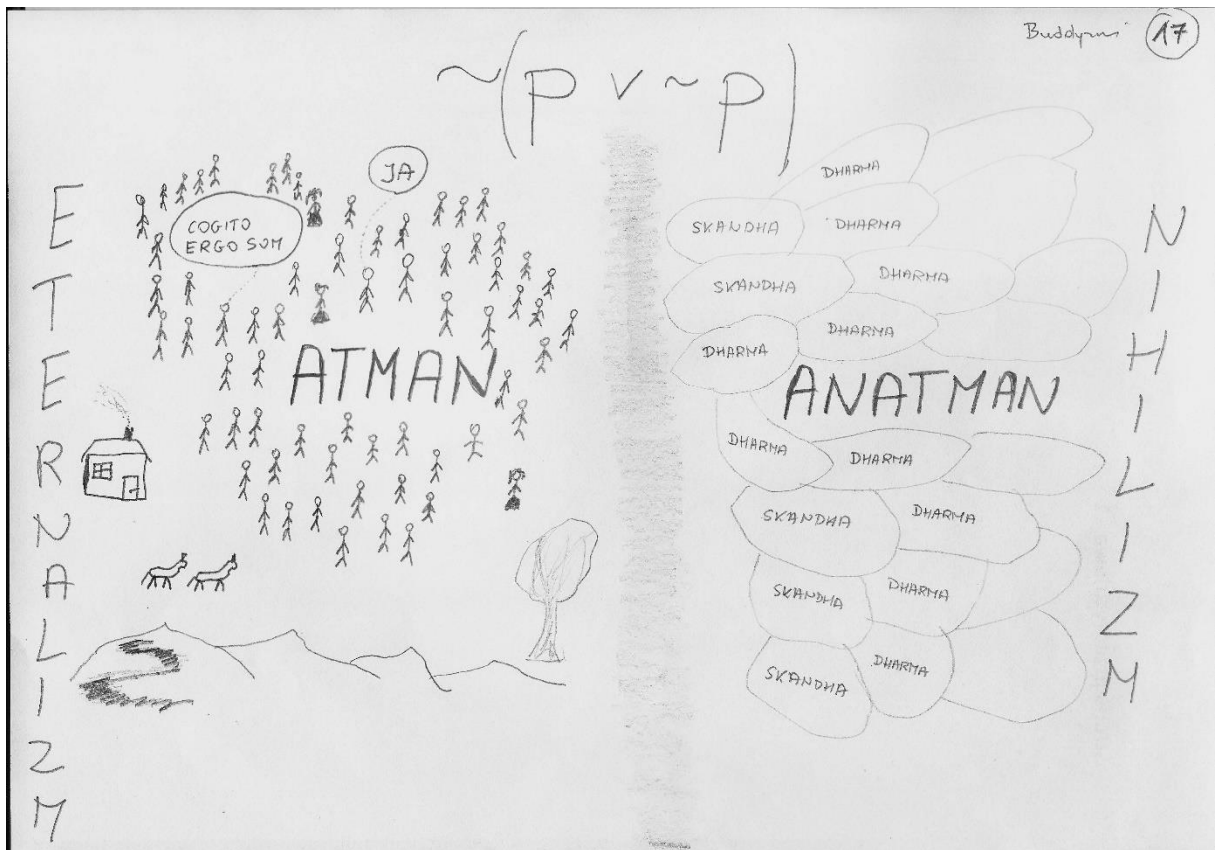 Buddyzm
17
~(p v ~ p)
ETERNALIZM
COGITO
ERGO SUM
JA
ATMAN
DHARMA
SKANDHA
DHARMA
SKANDHA
DHARMA
DHARMA
DHARMA
ANATMAN
DHARMA
DHARMA
SKANDHA
DHARMA
SKANDHA
DHARMA
SKANDHA
DHARMA
NIHILIZM